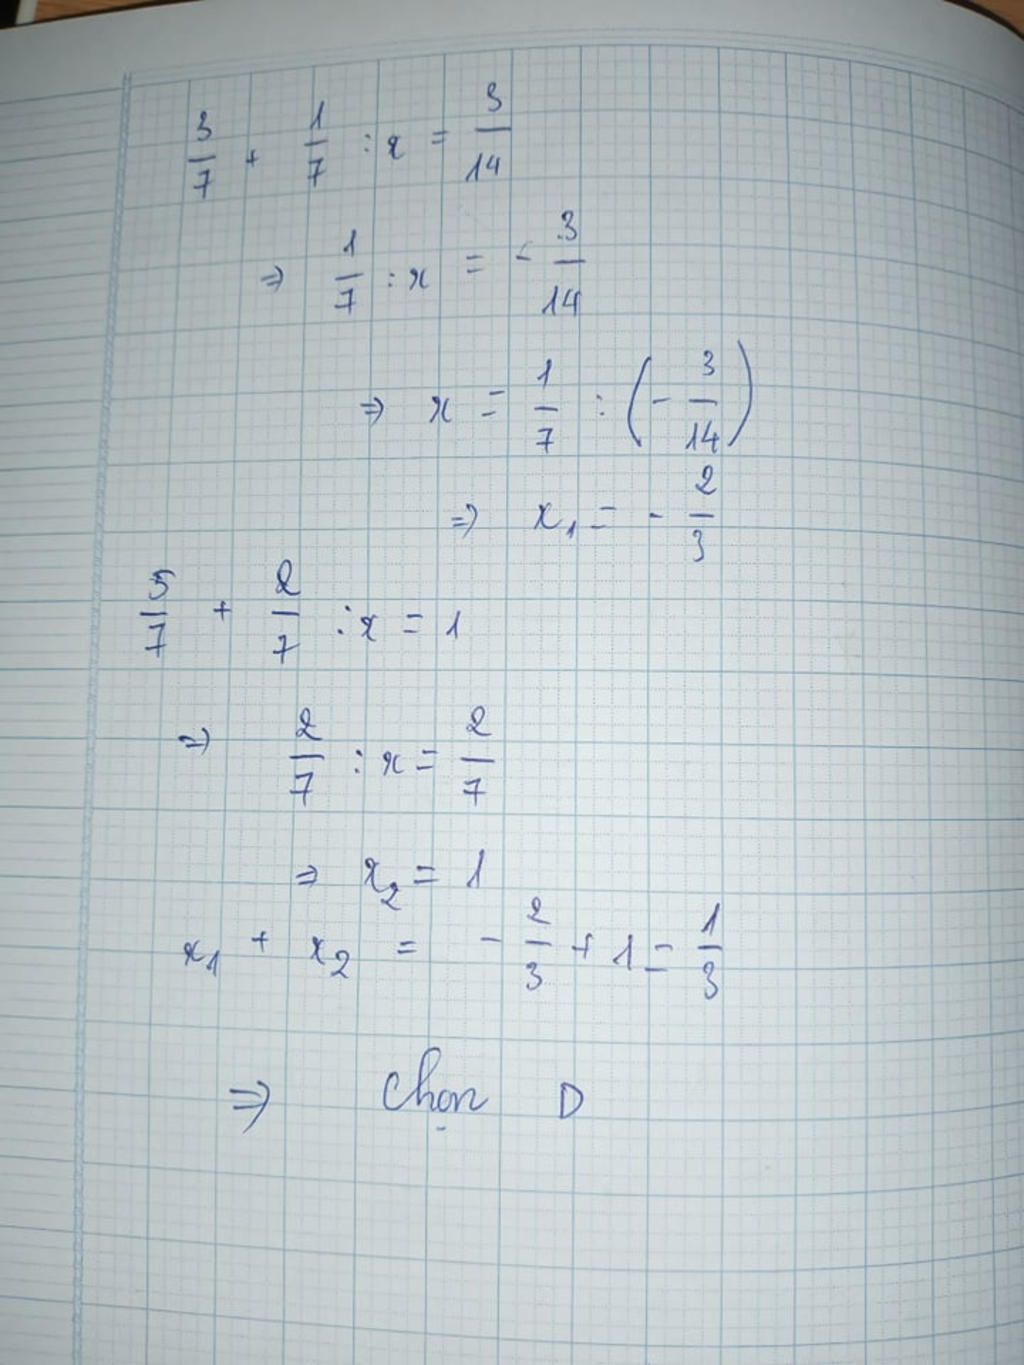 3/7 + 1/7 : x = 3/14
⇒ 1/7 : x = - 3/14
⇒ x = 1/7 : (- 3/14)
⇒ x₁ = - 2/3
5/7 + 2/7 : x = 1
⇒ 2/7 : x = 2/7
⇒ x₂ = 1
x₁ + x₂ = - 2/3 + 1 = 1/3
⇒ Chọn D